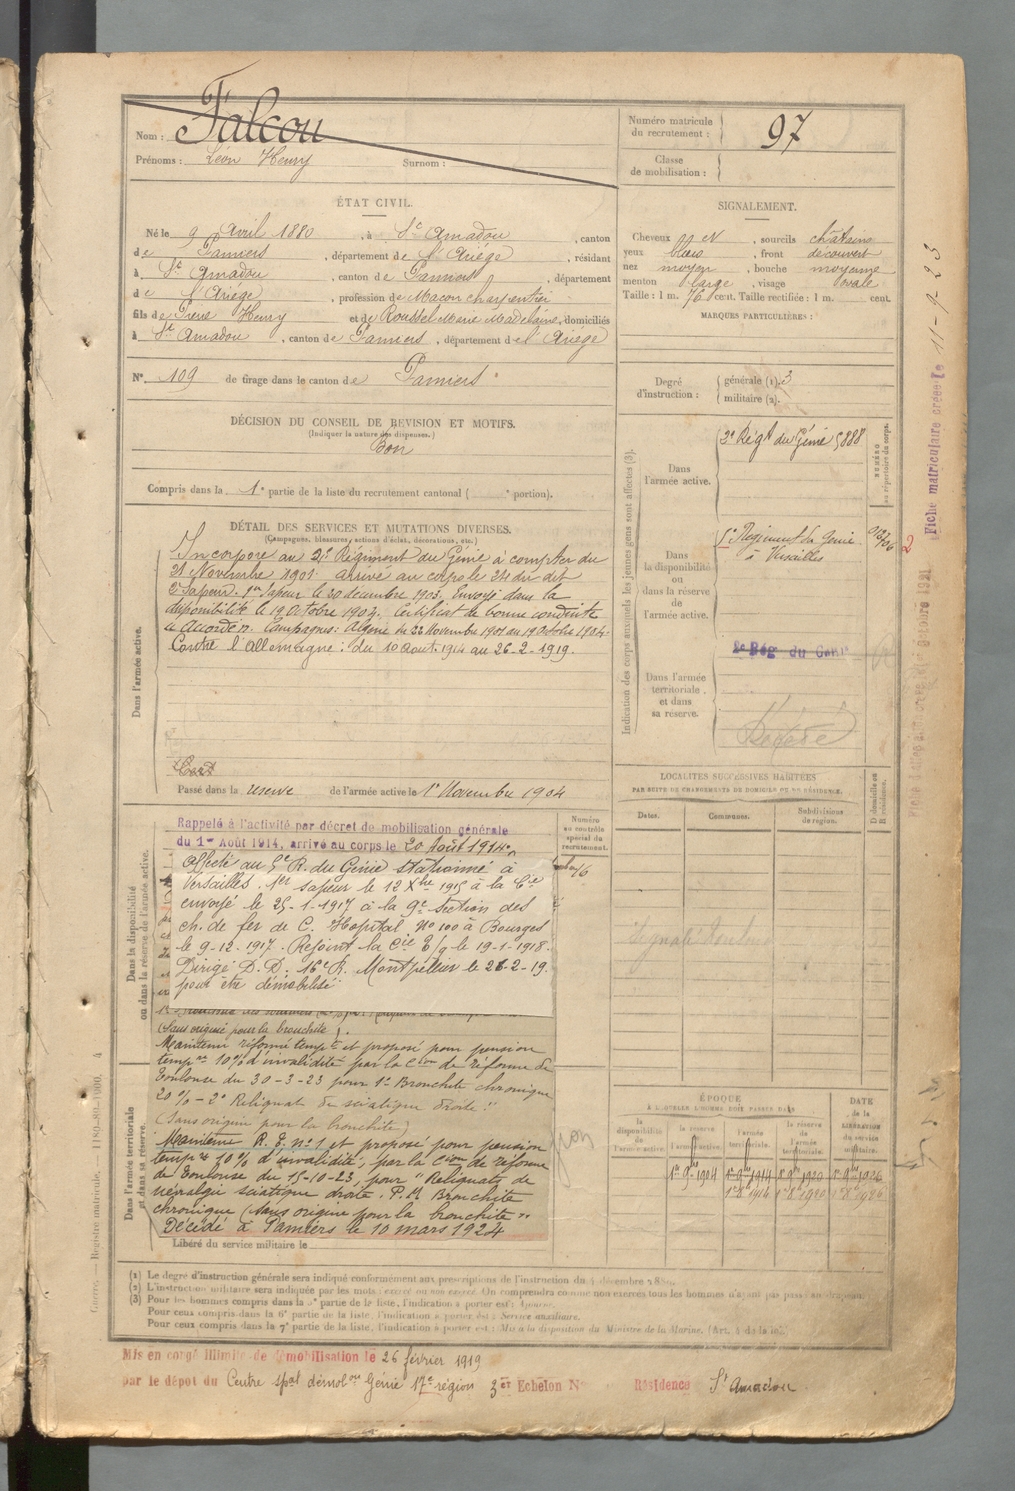 Nom : Falcou
Prénoms : Léon Henry Surnom :
Numéro matricule du recrutement : 97
Classe de mobilisation :
ÉTAT CIVIL.
Né le 9 Avril 1880, à St Amadou, canton
de Pamiers, département de l'Ariége, résidant
à St Amadou, canton de Pamiers, département
de l'Ariége, profession de Maçon charpentier
fils de Henry et de Roussel Marie Madelaine, domiciliés
à St Amadou, canton de Pamiers, département de l'Ariége
No. 109 de tirage dans le canton de Pamiers
SIGNALEMENT.
Cheveux, sourcils chatains
yeux bleus, front découvert
nez moyen, bouche moyenne
menton large, visage ovale
Taille : 1 m. 76 cent. Taille rectifiée : 1 m. cent.
MARQUES PARTICULIÈRES :
Degré d'instruction : générale (1). 3
militaire (2).
DÉCISION DU CONSEIL DE REVISION ET MOTIFS.
(Indiquer la nature des dispenses.)
Bon
Compris dans la 1e partie de la liste du recrutement cantonal ( e portion).
DÉTAIL DES SERVICES ET MUTATIONS DIVERSES.
(Campagnes, blessures, actions d'éclat, décorations, etc.)
Dans l'armée active.
Incorporé au 2e Régiment du Génie à compter du
21 Novembre 1901. arrivé au corps le 21 du dit
2e Sapeur. 1er Sapeur le 20 décembre 1903. Envoyé dans la
disponibilité le 19 Octobre 1904. Certificat de bonne conduite
Accordé. Campagnes: Algérie du 22 Novembre 1901 au 19 Octobre 1904.
Contre l'Allemagne : du 10 Août 1914 au 26-2-1919.
Passé dans la réserve de l'armée active le 1er Novembre 1904
Indication des corps auxquels les jeunes gens sont affectés (3).
NUMÉRO au répertoire du corps.
Dans l'armée active.
2e Régt du Génie 5888
Dans la disponibilité ou dans la réserve de l'armée active.
5e Régiment du Génie
à Versailles
Dans l'armée territoriale et dans sa réserve.
2e Rég. du Génie
Décédé
Fiche matriculaire créée le 11-9-23
LOCALITÉS SUCCESSIVES HABITÉES
PAR SUITE DE CHANGEMENTS DE DOMICILE OU DE RÉSIDENCE.
Dates.
Communes.
Subdivisions de région.
D domicile et R résidence.
Dans la disponibilité ou dans la réserve de l'armée active.
Numéro au contrôle spécial du recrutement.
Rappelé à l'activité par décret de mobilisation générale
du 1er Août 1914, arrivé au corps le 20 Août 1914.
Affecté au 5e R. du Génie stationné à
Versailles. Mer sapeur le 12 Xbre 1915 à la Cie
envoyé le 25-1-1917 à la 9e section des
ch. de fer de C. Hopital No 100 à Bourges
le 9-12-1917. Rejoint la Cie E/9 le 19-1-1918.
Dirigé D.D. 16e R. Montpellier le 21-2-19.
pour être démobilisé
(Sans origine pour la bronchite).
Maintenu réformé tempre et proposé pour pension
tempre 10% d'invalidité par la Con de réforme de
Toulouse du 30-3-23 pour 1° Bronchite chronique
20% - 2° Reliquat de sciatique droite "
(Sans origine pour la bronchite)
Dans l'armée territoriale et dans sa réserve.
Maintenu R.T. no 1 et proposé pour pension
tempre 10% d'invalidité, par la Con de réforme
de Toulouse du 15-10-23, pour "Reliquats de
névralgie sciatique droite. P.M. Bronchite
chronique (sans origine pour la bronchite".
Décédé à Pamiers le 10 mars 1924
Libéré du service militaire le
ÉPOQUE
À LAQUELLE L'HOMME DOIT PASSER DANS
DATE de la LIBÉRATION du service militaire.
la disponibilité de l'armée active.
la réserve de l'armée active.
l'armée territoriale.
la réserve de l'armée territoriale.
1er 9bre 1904 1er 9bre 1914 1er 9bre 1920 1er 9bre 1926
1er 8bre 1914 1er 8bre 1920 1er 8bre 1926
(1) Le degré d'instruction générale sera indiqué conformément aux prescriptions de l'instruction du 4 décembre 1889.
(2) L'instruction militaire sera indiquée par les mots : exercé ou non exercé. On comprendra comme non exercés tous les hommes n'ayant pas passé au drapeau.
(3) Pour les hommes compris dans la 5e partie de la liste, l'indication à porter est :
Pour ceux compris dans la 6e partie de la liste, l'indication à porter est : Service auxiliaire.
Pour ceux compris dans la 7e partie de la liste, l'indication à porter est : Mis à la disposition du Ministre de la Marine. (Art. 4 de la loi.)
Mis en congé illimité de démobilisation le 26 février 1919
par le dépot du Centre spal démobon Génie 17e région 3er Echelon No Résidence St Amadou
Guerre. — Registre matricule.